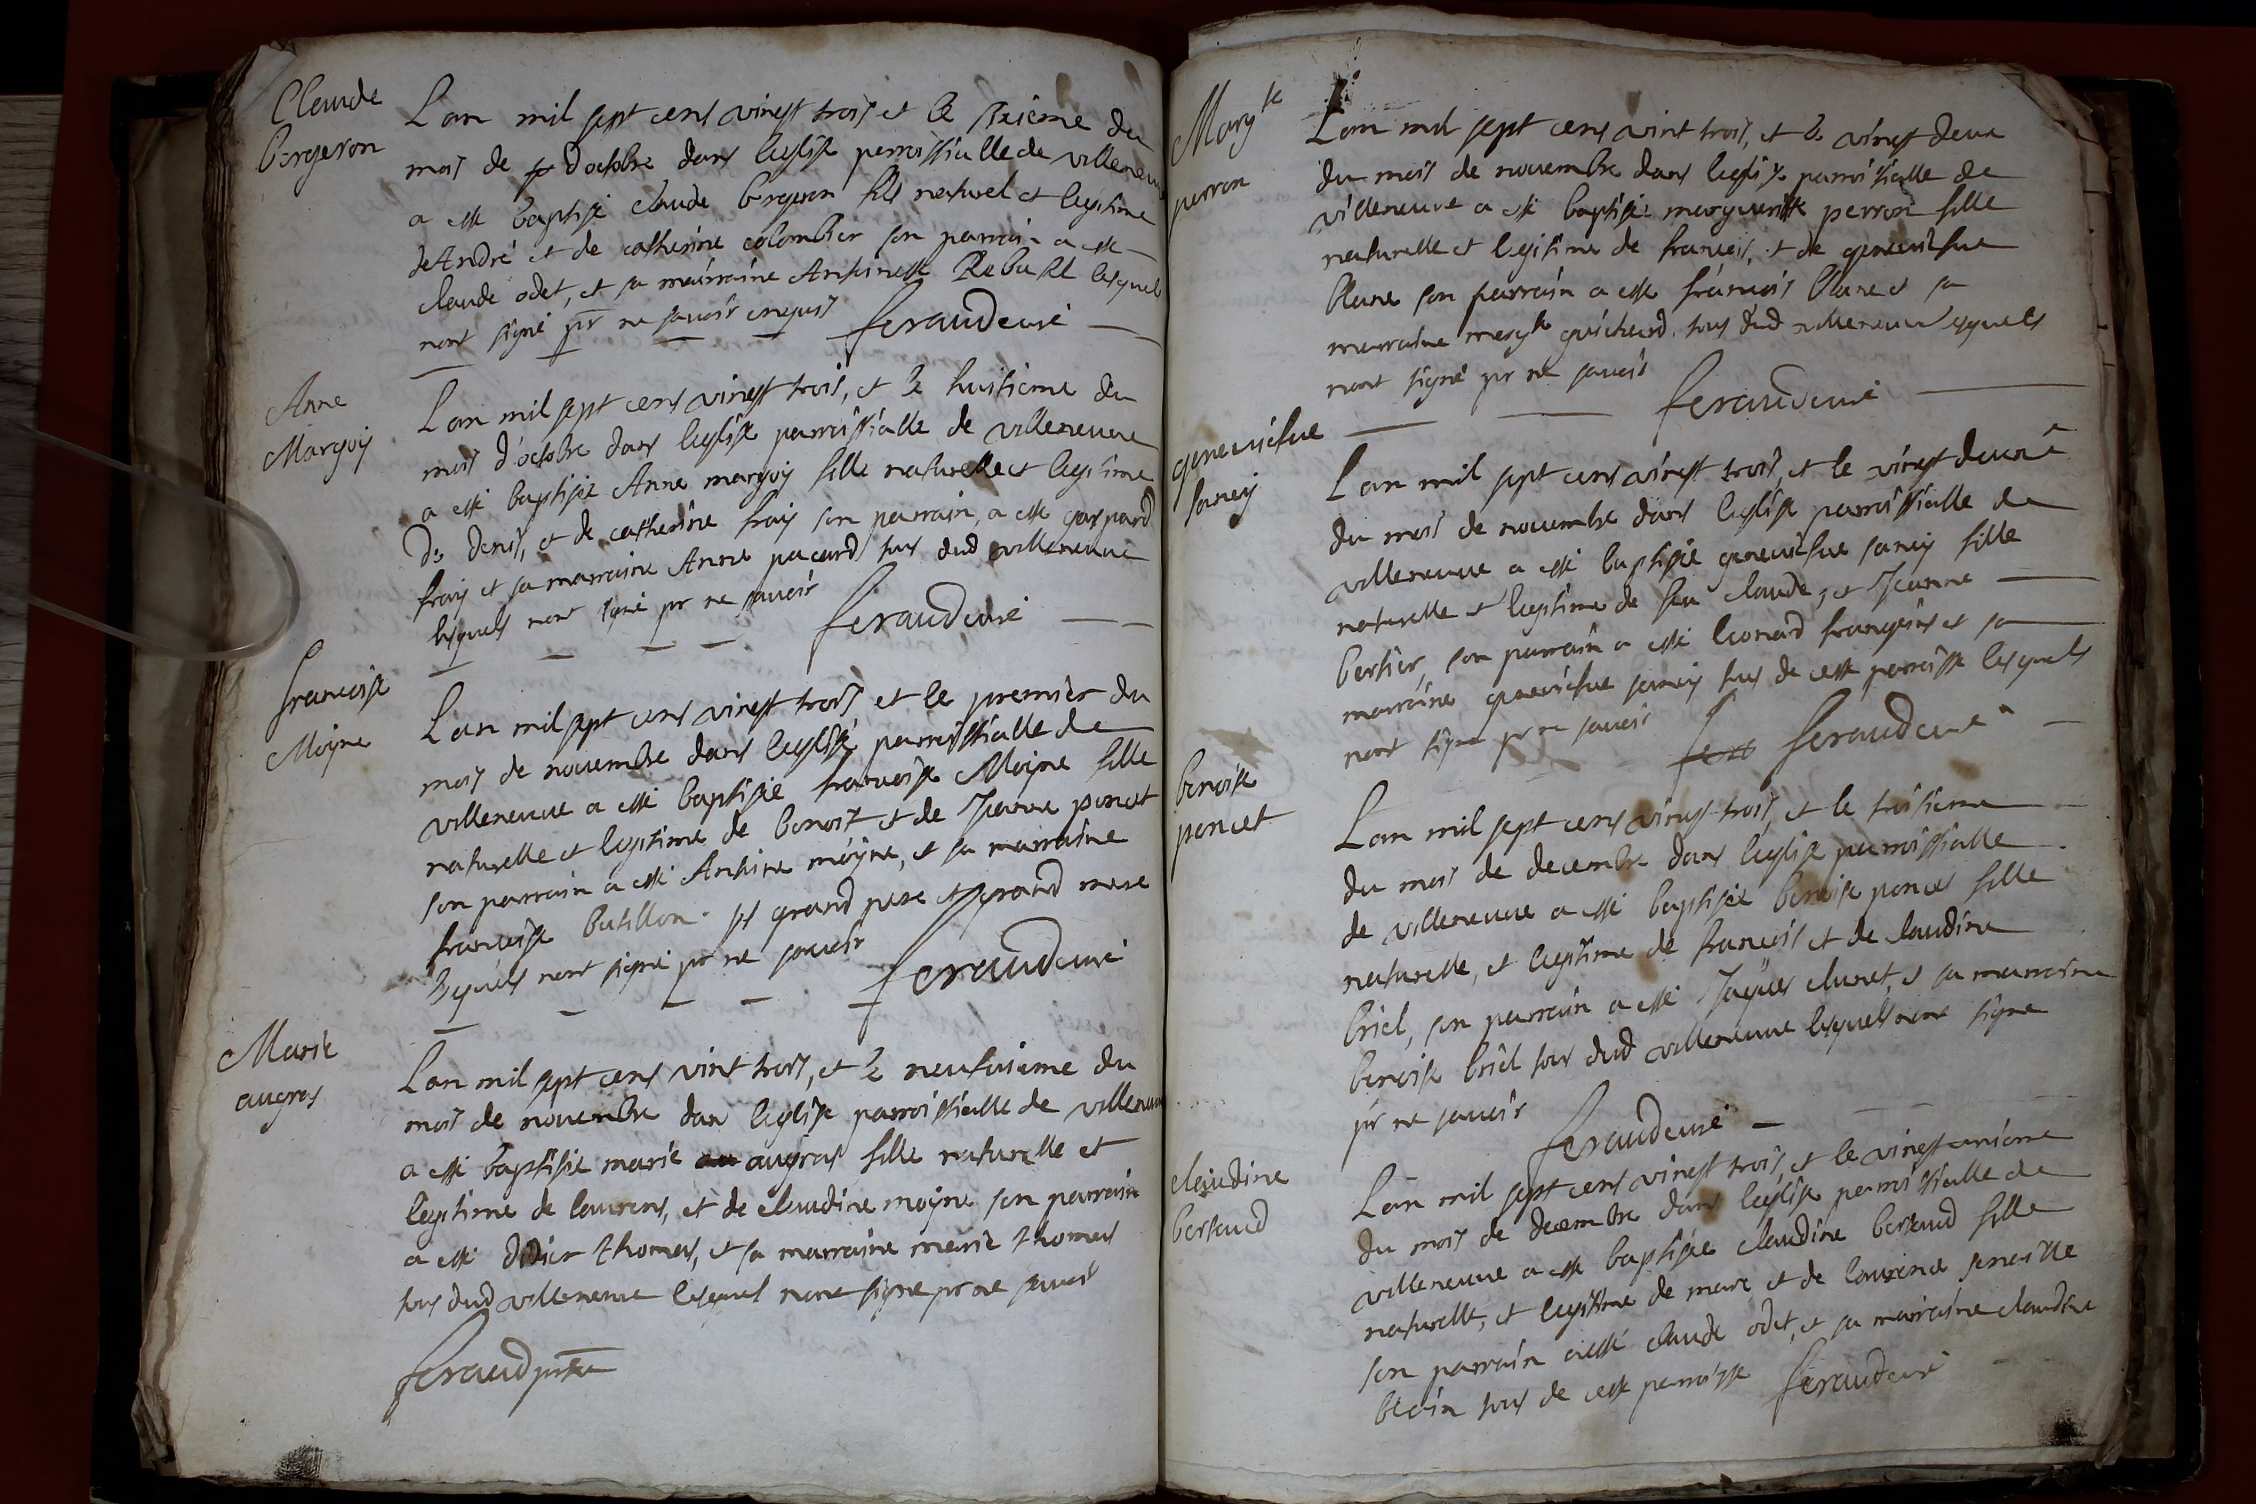 Claude
bergeron
Lan mil sept cens vingt trois et le sixieme du
mois de doctobre dans leglise parroissialle de villeneuve
a esté baptisé claude bergeron fils naturel et legitime
de André et de catherine colombier son parrain a esté
claude odet, et sa mairraine Anthinette lesquels
nont signé pr ne scavoir enquis feraud curé
Anne
Margoy
Lan mil sept cens vingt trois, et le huitieme du
mois d'octobre dans leglise parroissialle de villeneuve
a esté baptisée Anne margoy fille naturelle et legitime
De denis, et de catherine frais son parrain, a esté gaspard
frais et sa marraine Anne pacard tous dud villeneuve
lesquels nont signé pr ne scavoir feraud curé
francoise
Moyne
Lan mil sept cens vingt trois et le premier du
mois de novembre dans leglise parroissialle de
villeneuve a esté baptisée francoise Moyne fille
naturelle et legitime de benoist et de Jeanne poncet
son parrain a esté Anthine moyne, et sa marraine
francoise butillon grand pere et grand mere
lesquels nont signé pr ne scavoir feraud curé
Marie
augras
Lan mil sept cens vint trois, et le neufvieme du
mois de novembre dans leglise parroissialle de villeneuve
a esté baptisée marie augras fille naturelle et
legitime de laurens, et de claudine moyne son parrain
a esté didier thomas, et sa marraine marie thomas
tous dud villeneuve lesquels nont signe pr ne scavoir
feraud
Margte
perron
Lan mil sept cens vint trois, et le vingt deux
du mois de novembre dans leglise parroissialle de
villeneuve a esté baptisée margueritte perron fille
naturelle et legitime de francois, et de geneviefve
blanc son parrain a esté francois blanc et sa
marraine margte guichard tous dud villeneuve lesquels
nont signé pr ne scavoir
feraud curé
geneviefve
sancy
Lan mil sept cens vingt trois, et le vingt
du mois de novembre dans leglise parroissialle de
villeneuve a esté baptisée geneviefve sancy fille
naturelle et legitime de feu claude, et Jeanne
bertier, son parrain a esté leonard francgeins et sa
marraine geneviefve sancy tous de cette parroisse lesquels
nont signe pr ne scavoir fera feraud curé
benoise
poncet
Lan mil sept cens vingt trois, et le troisieme
du mois de decembre dans leglise parroissialle
de villeneuve a esté baptisée benoise poncet fille
naturelle, et legitime de francois et de claudine
briel, son parrain a esté Jaques clunet, et sa marraine
benoise briel tous dud villeneuve lesquels nont signe
pr ne scavoir
feraud curé
claudine
bertaud
Lan mil sept cens vingt trois, et le vingt unieme
du mois de decembre dans leglise parroissialle de
villeneuve a esté baptisée claudine bertaud fille
naturelle, et legitime de marc et de laurence
son parrain a esté claude odet, et sa marraine claudine
blain tous de cette parroisse feraud curé